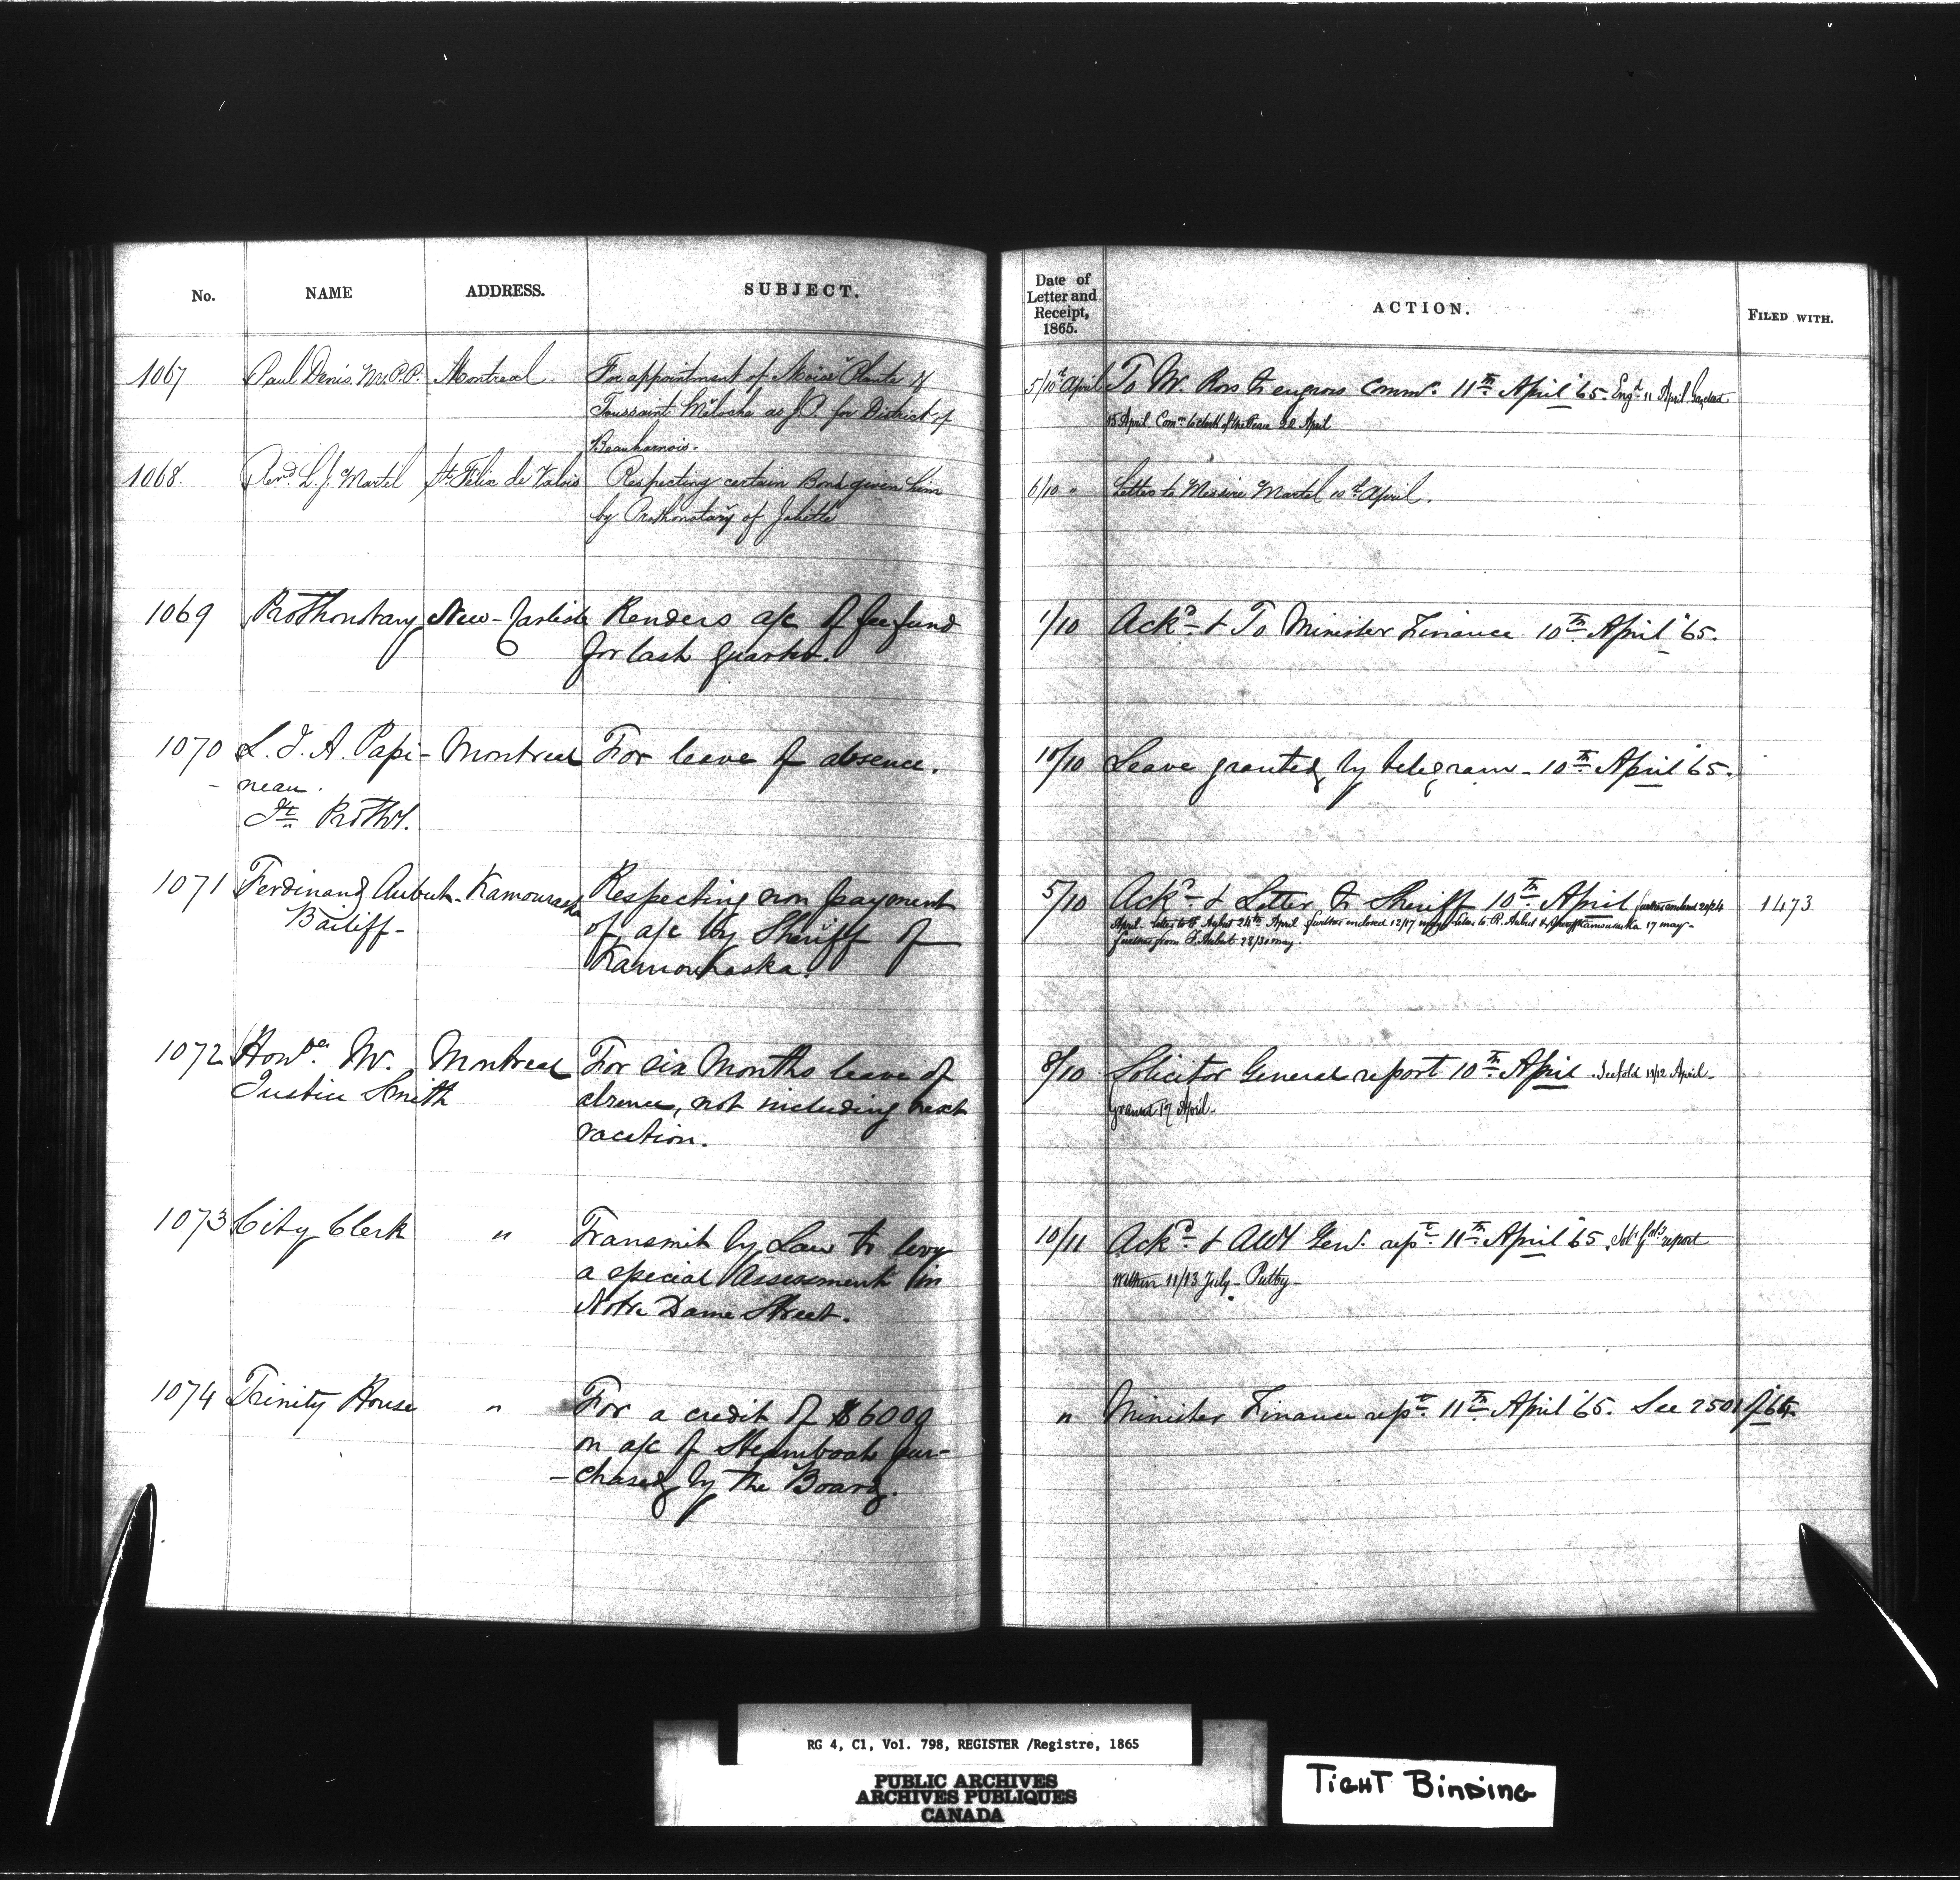 No. NAME ADDRESS. SUBJECT. Date of Letter and Receipt, 1865. ACTION. FILED WITH.
1067 Paul Denis, M.P.P. Montreal. For appointment of Moïse Plante & 5/10th April To Mr. Ross to engross Commn. 11th April '65. Engd. 11 April
Toussaint as J.P. for District of 15 April Comn. to Clerk of the Peace 22 April
Beauharnois.
1068. Revd. L. J. Martel St. Félix de Valois Respecting certain Bond given him 6/10 " Letter to Messire Martel 10th April.
by Prothonotary of Joliette
1069 Prothonotary New-Carlisle Renders a/c of fee fund 1/10 Ackd. & To Minister Finance 10th April '65.
for last quarter.
1070 L. J. A. Papi- Montreal For leave of absence. 10/10 Leave granted by telegram - 10th April '65.
- neau.
Jt. Prothy.
1071 Ferdinand Aubut - Kamouraska Respecting non payment 5/10 Ackd. & Letter to Sheriff 10th April further enclosed 20/24 1473
Bailiff - of a/c by Sheriff of April - Letter to F. Aubut 24th April further enclosed 12/17 may Letter to R. Aubut & Sheriff Kamouraska 17 may -
Kamouraska. further from F. Aubut 28/30 may.
1072 Honble. Mr. Montreal For six Months leave of 8/10 Solicitor General report 10th April. 11/12 April -
Justice Smith absence, not including next Granted 17 April -
vacation.
1073 City Clerk " Transmit by Law to levy 10/11 Ackd. & Atty Genl. rept. 11th April '65. Sol: Genl's report
a special Assessment in within 11/13 July - Putby -
Notre Dame Street.
1074 Trinity House " For a credit of $6000 " Minister Finance rept. 11th April '65. See 2501 of '64.
on a/c of Steamboats pur-
- chased by the Board.
RG 4, C1, Vol. 798, REGISTER /Registre, 1865
PUBLIC ARCHIVES
ARCHIVES PUBLIQUES
CANADA
TIGHT BINDING